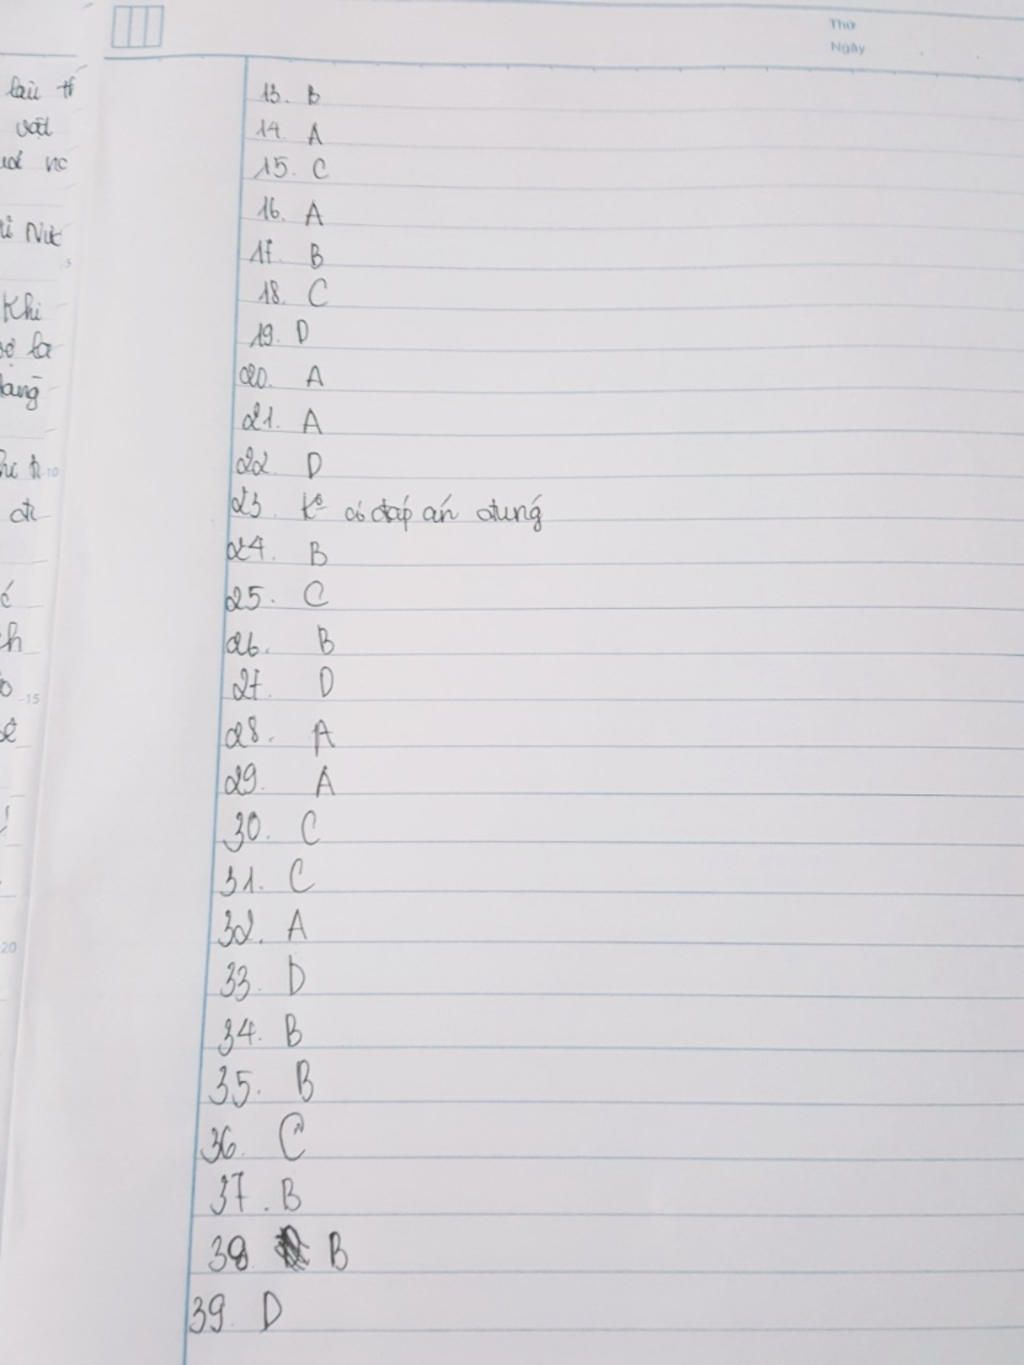 Thứ
Ngày
lại
vật
nc
Khi
là
13. B
14. A
15. C
16. A
17. B
18. C
19. D
20. A
21. A
22. D
23. Ko có đáp án đúng
24. B
25. C
26. B
27. D
28. A
29. A
30. C
31. C
32. A
33. D
34. B
35. B
36. C
37. B
38 B
39. D
5
10
15
20